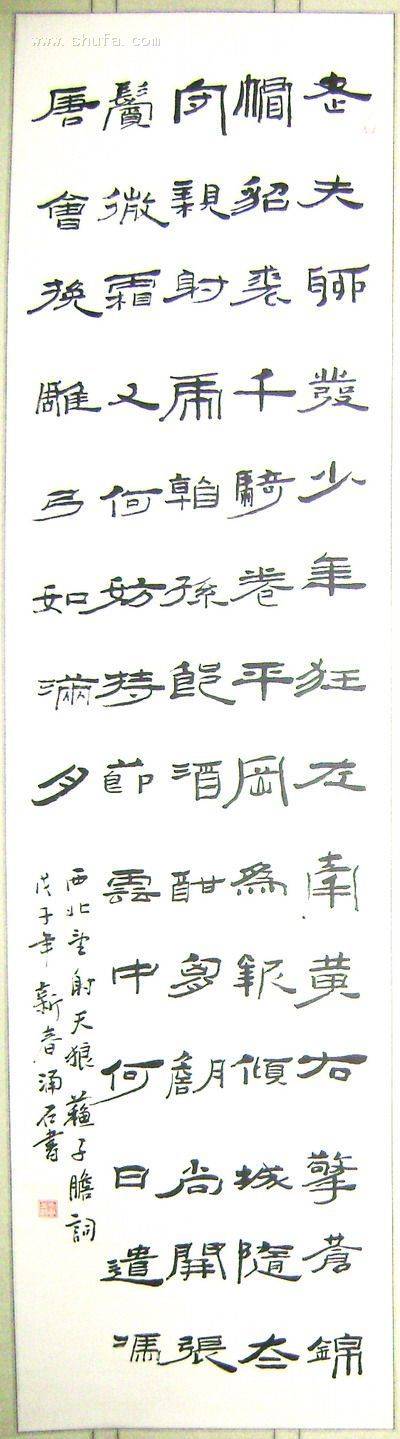 www.shufa.com
老夫聊發少年狂左牽黃右擎蒼錦
帽貂裘千騎卷平岡為報傾城隨太
守親射虎看孫郎酒酣胸膽尚開張
鬢微霜又何妨持節雲中何日遣馮
唐會挽雕弓如滿月
西北望射天狼蘇子瞻詞
戊子年新春涌石書